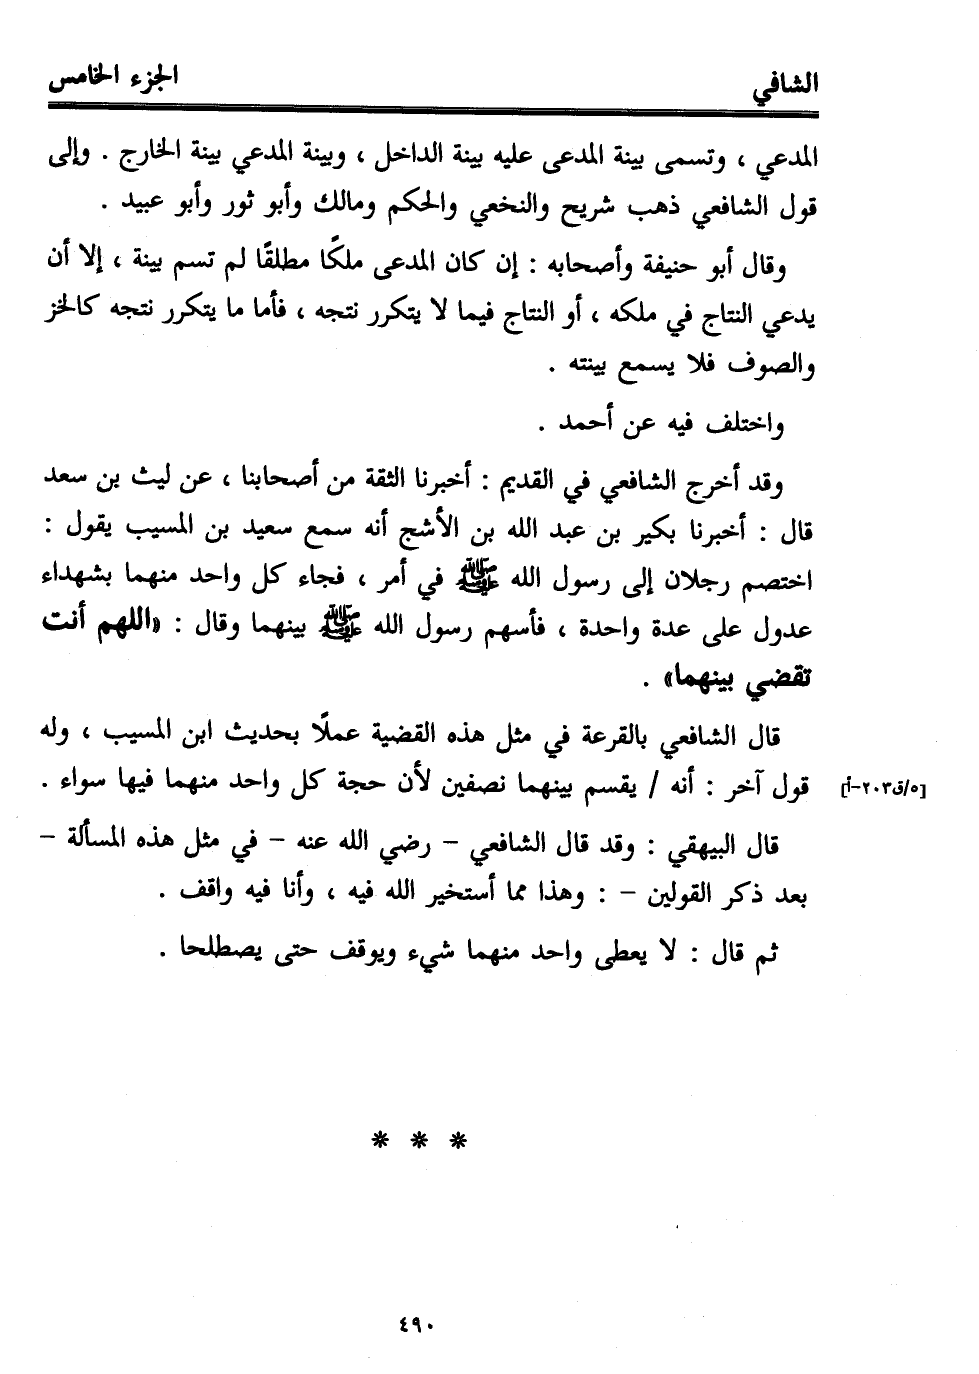 الشافي
الجزء الخامس
المدعي ، وتسمى بينة المدعى عليه بينة الداخل ، وبينة المدعي بينة الخارج . وإلى
قول الشافعي ذهب شريح والنخعي والحكم ومالك وأبو ثور وأبو عبيد .
وقال أبو حنيفة وأصحابه : إن كان المدعى ملكًا مطلقًا لم تسم بينة ، إلا أن
يدعي النتاج في ملكه ، أو النتاج فيما لا يتكرر نتجه ، فأما ما يتكرر نتجه كالخز
والصوف فلا يسمع بينته .
واختلف فيه عن أحمد .
وقد أخرج الشافعي في القديم : أخبرنا الثقة من أصحابنا ، عن ليث بن سعد
قال : أخبرنا بكير بن عبد الله بن الأشج أنه سمع سعيد بن المسيب يقول :
اختصم رجلان إلى رسول الله ﷺ في أمر ، فجاء كل واحد منهما بشهداء
عدول على عدة واحدة ، فأسهم رسول الله ﷺ بينهما وقال : «اللهم أنت
تقضي بينهما» .
قال الشافعي بالقرعة في مثل هذه القضية عملًا بحديث ابن المسيب ، وله
قول آخر : أنه / يقسم بينهما نصفين لأن حجة كل واحد منهما فيها سواء .
[٥/ق٢٠٣-أ]
قال البيهقي : وقد قال الشافعي – رضي الله عنه – في مثل هذه المسألة –
بعد ذكر القولين – : وهذا مما أستخير الله فيه ، وأنا فيه واقف .
ثم قال : لا يعطى واحد منهما شيء ويوقف حتى يصطلحا .
* * *
٤٩٠